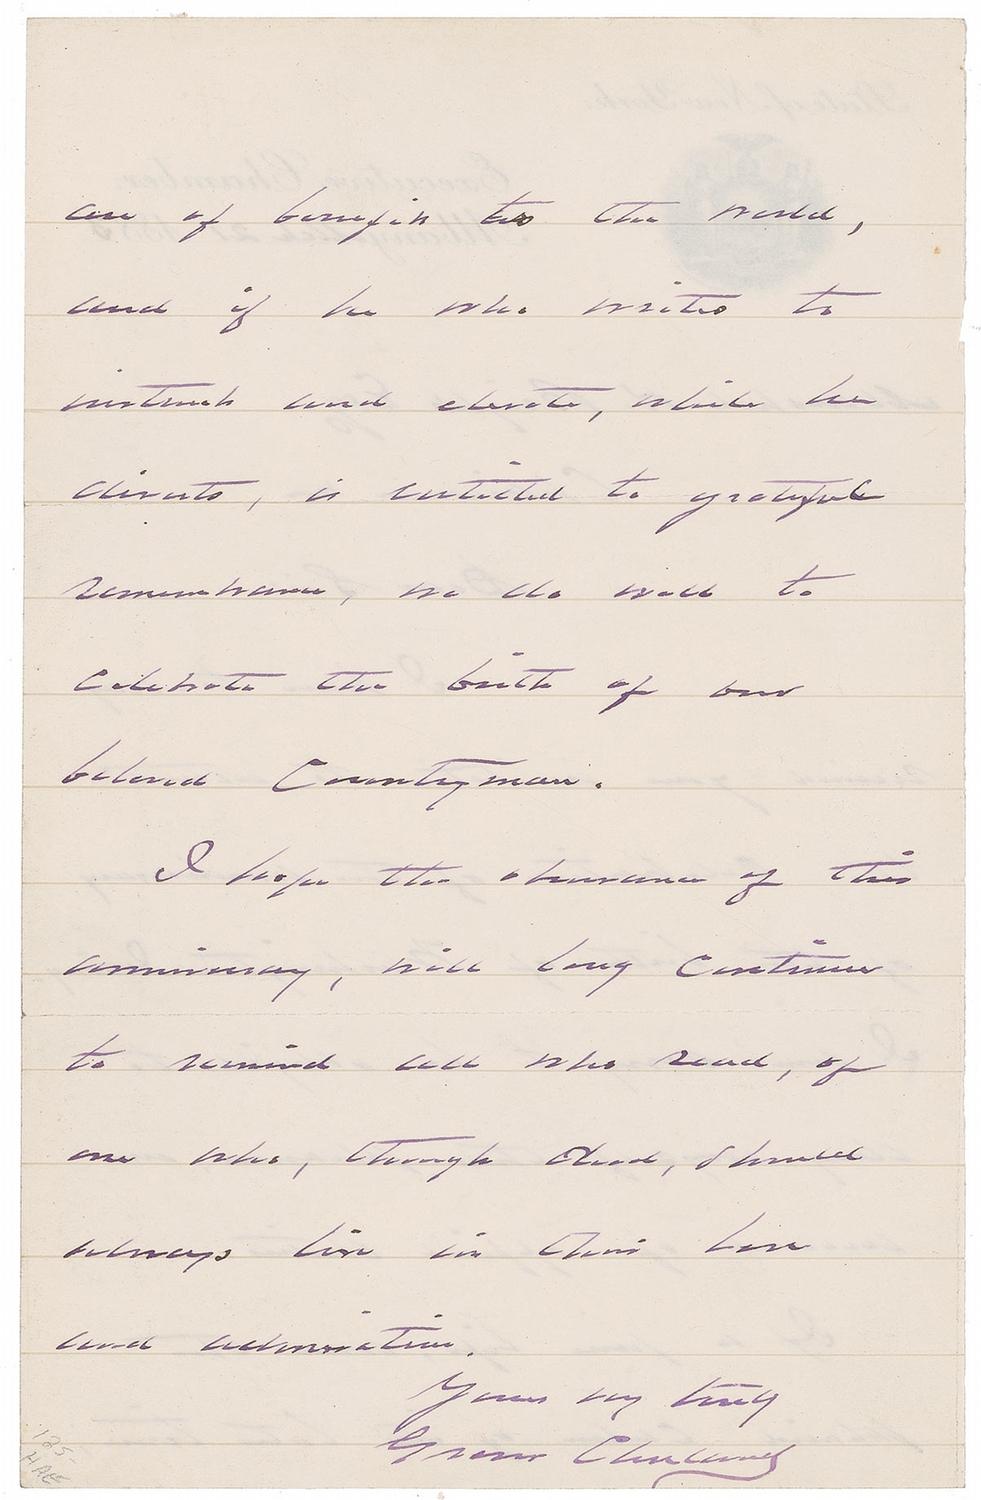 are of benefit to the world,
and if he who writes to
instruct and elevate, while he
diverts, is entitled to grateful
remembrance, we do well to
celebrate the birth of our
beloved Countryman.
I hope the observance of this
anniversary, will long continue
to remind all who read, of
one who, though dead, should
always live in their love
and admiration.
Yours very truly
Grover Cleveland
125-
HAE